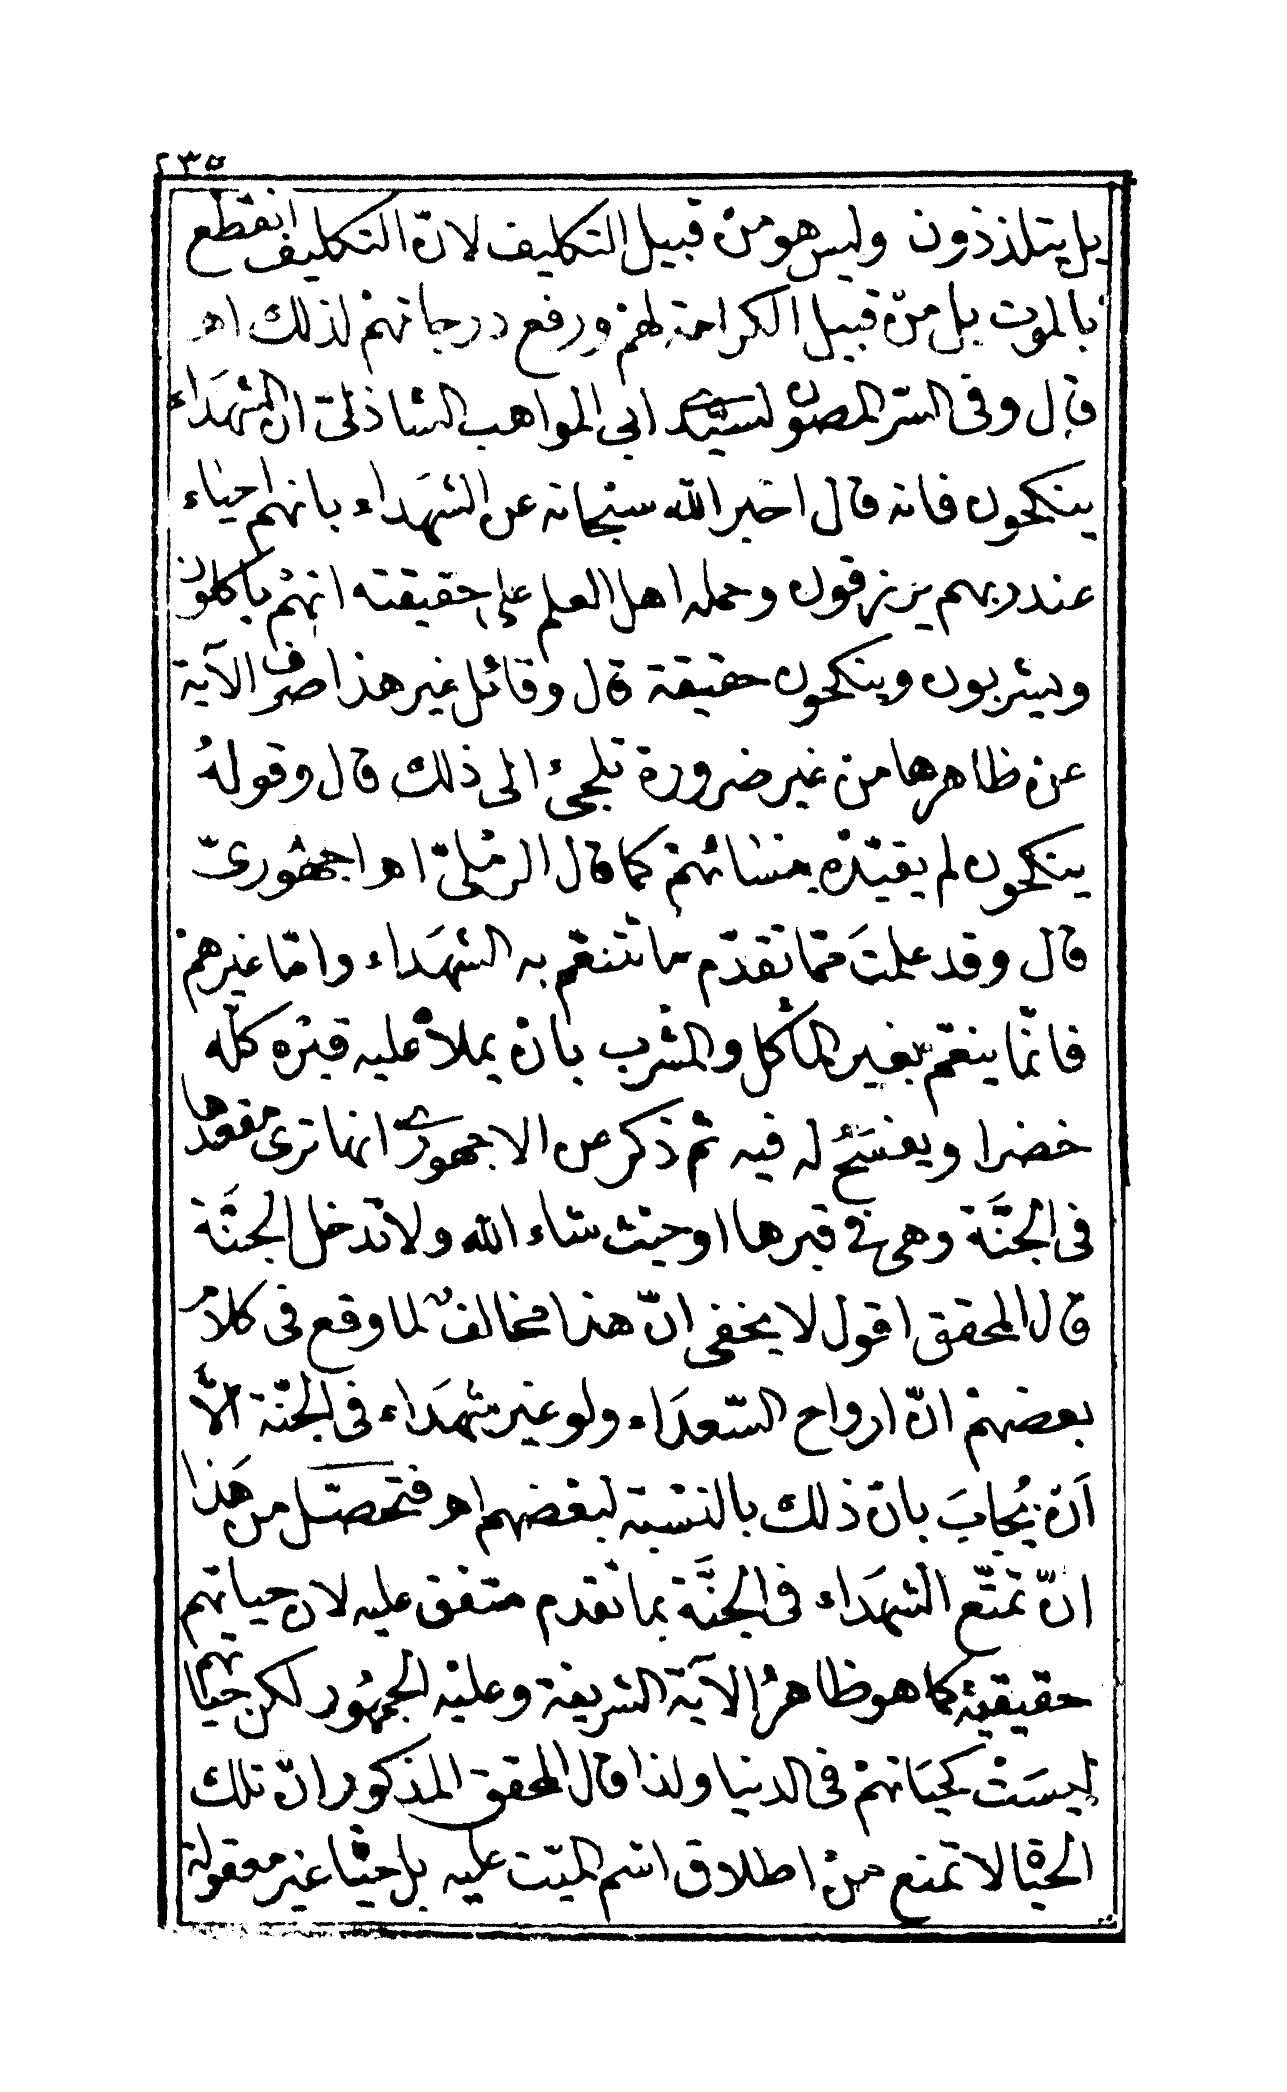 ٢٣٥
بل يتلذذون وليس هو من قبيل التكليف لانّ التكليف انقطع
بالموت بل من قبيل الكرامة لهم ورفع درجاتهم لذلك اهـ
قال وفى السّر المصون لسيّدى ابى المواهب الشاذلىّ ان الشهَداء
ينكحون فانه قال اخبر الله سبحانه عن الشهَداء بانهم احياء
عند ربهم يرزقون وحمله اهل العلم على حقيقته انهم ياكلون
ويشربون وينكحون حقيقة قال وقائل غير هذا صرف الآية
عن ظاهرها من غير ضرورة تلجئ الى ذلك قال وقوله
ينكحون لم يقيّده بنسائهم كما قال الرملىّ اهـ اجهورىّ
قال وقد علمتَ ممّا تقدّم ما تتنعّم به الشهَداء وامّا غيرهم
فانّما ينعّم بغير المأكل والمشرب بان يملأ عليه قبره كلّه
خضرا ويفسَحُ له فيه ثم ذكر عن الاجهورى انها ترى مقعدها
فى الجنَّة وهى فى قبرها او حيث شاء الله ولا تدخل الجنَّة
قال المحقق اقول لا يخفى انّ هذا مخالفٌ لما وقع فى كلام
بعضهم انّ ارواح السّعدَاء ولو غير شهَداء فى الجنّة الاّ
اَن يُجابَ بانّ ذلك بالنسْبة لبعضهم اهـ فتحصّل من هَذا
انّ تمتّع الشهَداء فى الجنَّة بما تقدم متفق عليه لان حياتهم
حقيقية كما هو ظاهرُ الآية الشريفة وعليْه الجمهُور لكن حياتهم
ليسَتْ كحيَاتهمْ فى الدنيا ولذا قال المحقق المذكور انّ تلك
الحياة لا تمنع منْ اطلاق اسْم الميّت عليه بل حيّا غير معقولة